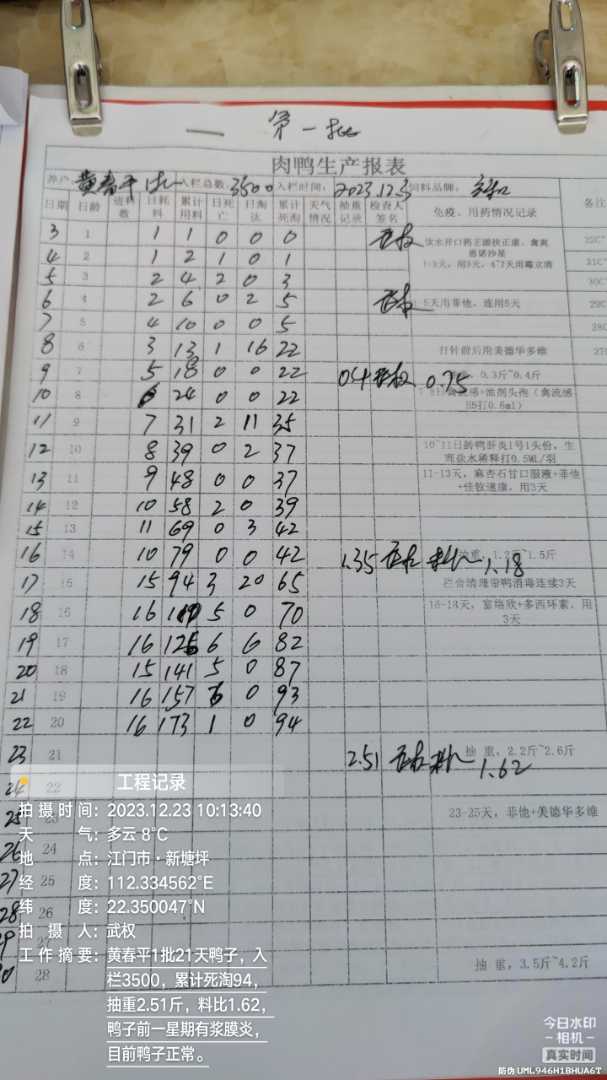 第一批
肉鸭生产报表
养户 黄春平1批 入栏总数 3500 入栏时间: 2023.12.3 饲料品牌:
日期 日龄 进料数 日耗料 累计用料 日死亡 日淘汰 累计死淘 天气情况 抽重记录 检查人签名 免疫、用药情况记录 备注
3 1 1 1 0 0 0 武权 饮水开口药 22C°
4 2 1 2 1 0 1 31C°
5 3 2 4 2 0 3 30C°
6 4 2 6 0 2 5 武权 5天用菲他，连用5天 29C
7 5 4 10 0 0 5 28C
8 6 3 13 1 16 22 打针前后用美德华多维 27
9 7 5 18 0 0 22 0.54 武权 0.75 0.3斤~0.4斤
10 8 6 24 0 0 22 油剂头孢（禽流感H5打0.6ml）
11 9 7 31 2 11 35
12 10 8 39 0 2 37 10-11日龄鸭肝炎1号1头份，生理盐水稀释打0.5ML/羽
13 11 9 48 0 0 37 11-13天，麻杏石甘口服液+菲他+佳牧速康，用3天
14 12 10 58 2 0 39
15 13 11 69 0 3 42
16 14 10 79 0 0 42 1.35 武权 料比 1.18 抽重，1.2斤~1.5斤
17 15 15 94 3 20 65 栏舍清理带鸭消毒连续3天
18 16 16 110 5 0 70 16-18天，富络欣+多西环素，用3天
19 17 16 126 6 6 82
20 18 15 141 5 0 87
21 19 16 157 6 0 93
22 20 16 173 1 0 94
23 21 2.51 武权 料比 1.62 抽重，2.2斤~2.6斤
24 22
25 23 23-25天，菲他+美德华多维
26 24
27 25
28 26
29 27
30 28 抽重，3.5斤~4.2斤
工程记录
拍摄时间：2023.12.23 10:13:40
天气：多云 8℃
地点：江门市·新塘坪
经度：112.334562°E
纬度：22.350047°N
拍摄人：武权
工作摘要：黄春平1批21天鸭子，入
栏3500，累计死淘94，
抽重2.51斤，料比1.62，
鸭子前一星期有浆膜炎，
目前鸭子正常。
今日水印
相机
真实时间
防伪 UML946H1BHUA6T